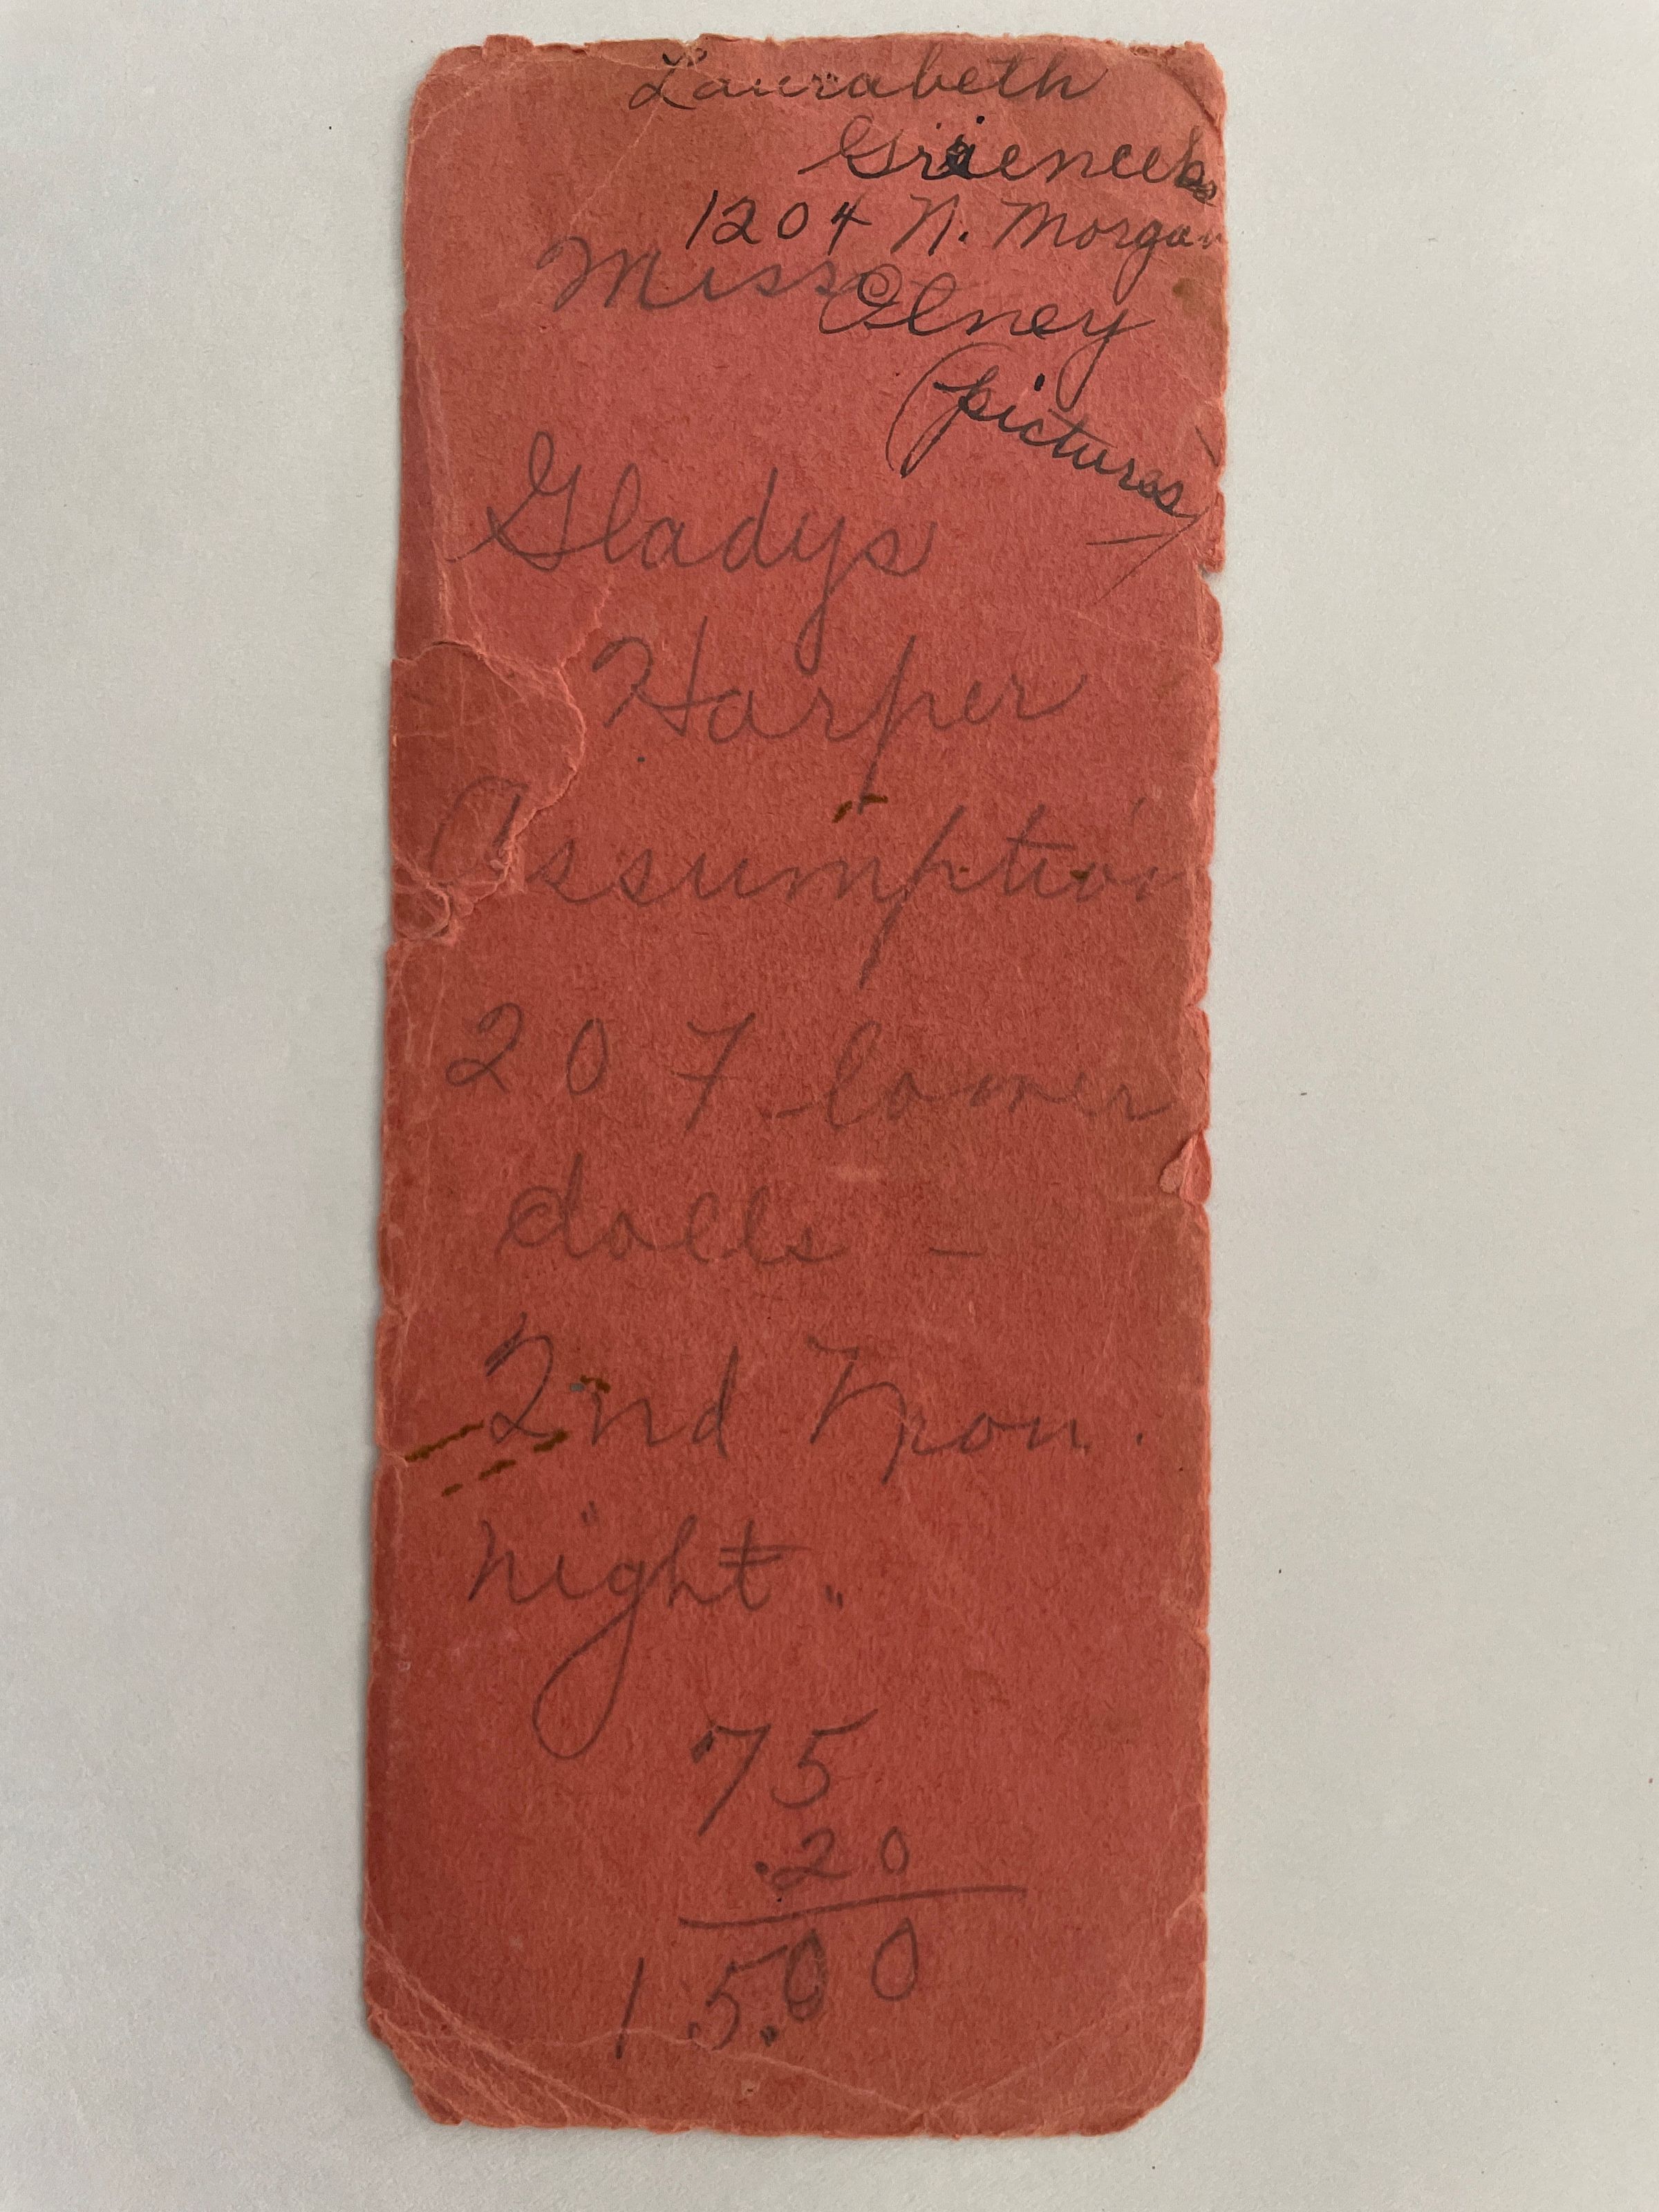 Laurabeth
1204 N. Morgan
Miss Olney
(pictures)
Gladys
Harper
Assumption
207
dolls -
2nd Mon.
night.
75
.20
15.00